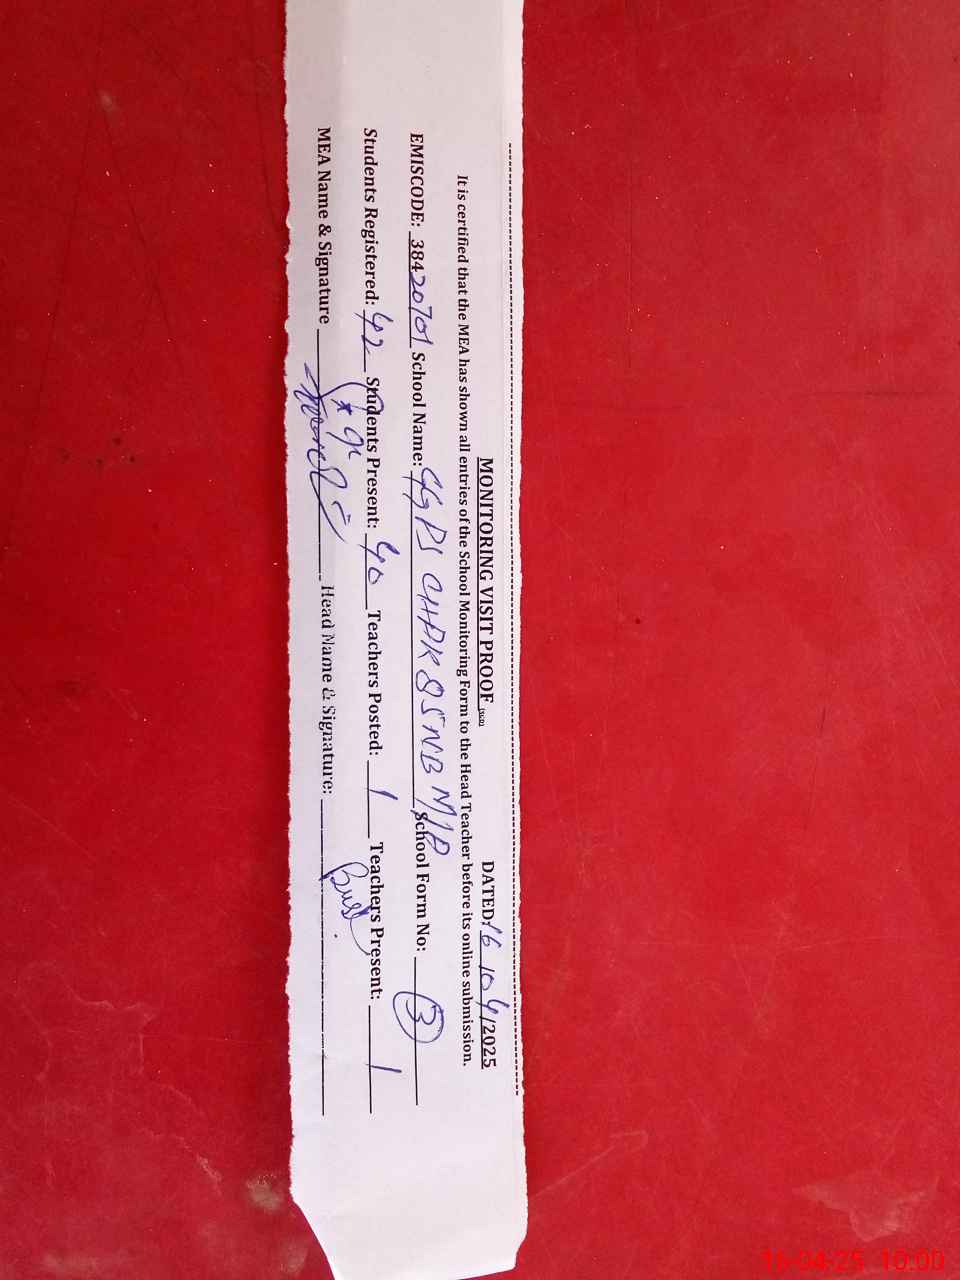 MONITORING VISIT PROOF (SGD) DATED: 16/04/2025
It is certified that the MEA has shown all entries of the School Monitoring Form to the Head Teacher before its online submission.
EMISCODE: 38420701 School Name: GGPS CHAK 85NB M/P School Form No: 3
Students Registered: 42 Students Present: 40 Teachers Posted: 1 Teachers Present: 1
MEA Name & Signature Head Name & Signature:
16-04-25 10:00